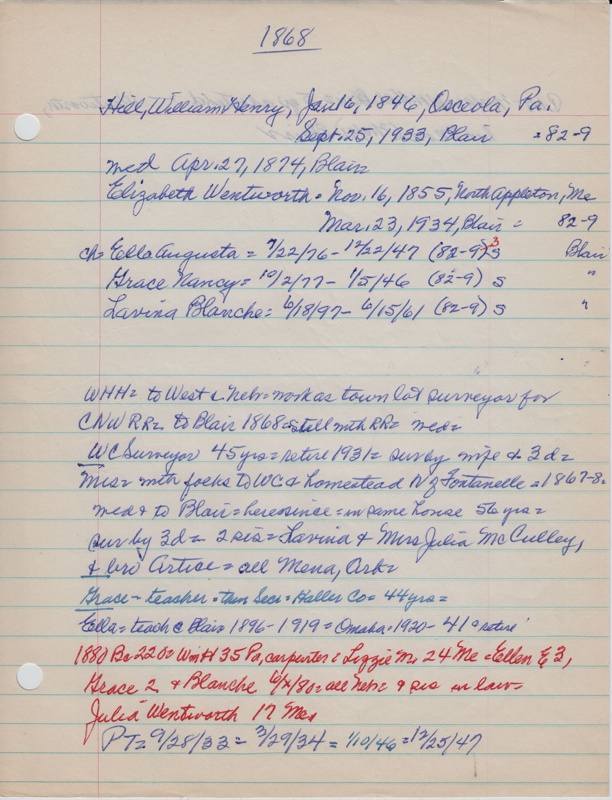 1868
Hill, William Henry, Jan 16, 1846, Osceola, Pa.
Sept. 25, 1933, Blair = 82-9
med Apr. 27, 1874, Blair=
Elizabeth Wentworth = Nov. 16, 1855, North Appleton, Me
Mar. 23, 1934, Blair = 82-9
ch= Ella Augusta = 7/22/76 - 12/22/47 (82-9) 3 s Blair
Grace Nancy = 10/2/77 - 1/5/46 (82-9) s "
Lavina Blanche = 6/18/97 - 6/15/61 (82-9) s "
WHH= to West & Nebr= work as town lot surveyor for
CNW RR= to Blair 1868= still with RR= med=
WC Surveyor 45 yrs= retire 1931= surv by wife & 3 d=
Mrs= with folks to WC & homestead N of Fontanelle = 1867-8=
med & to Blair= here since= in same house 56 yrs=
sur by 3 d= 2 sis= Lavina & Mrs Julia McCulley,
& bro Artise= all Mena, Ark=
Grace - teacher = then Secr = Haller Co= 44 yrs=
Ella= teach c Blair 1896-1919= Omaha= 1920-41= retire
1880 Bc 220= Wm H 35 Pa, carpenter = Lizzie M. 24 Me = Ellen E 3,
Grace 2 & Blanche 6/ /80= all Nebr= & sis in law=
Julia Wentworth 17 Me,
PT= 9/28/33= 3/29/34= 1/10/46= 12/25/47